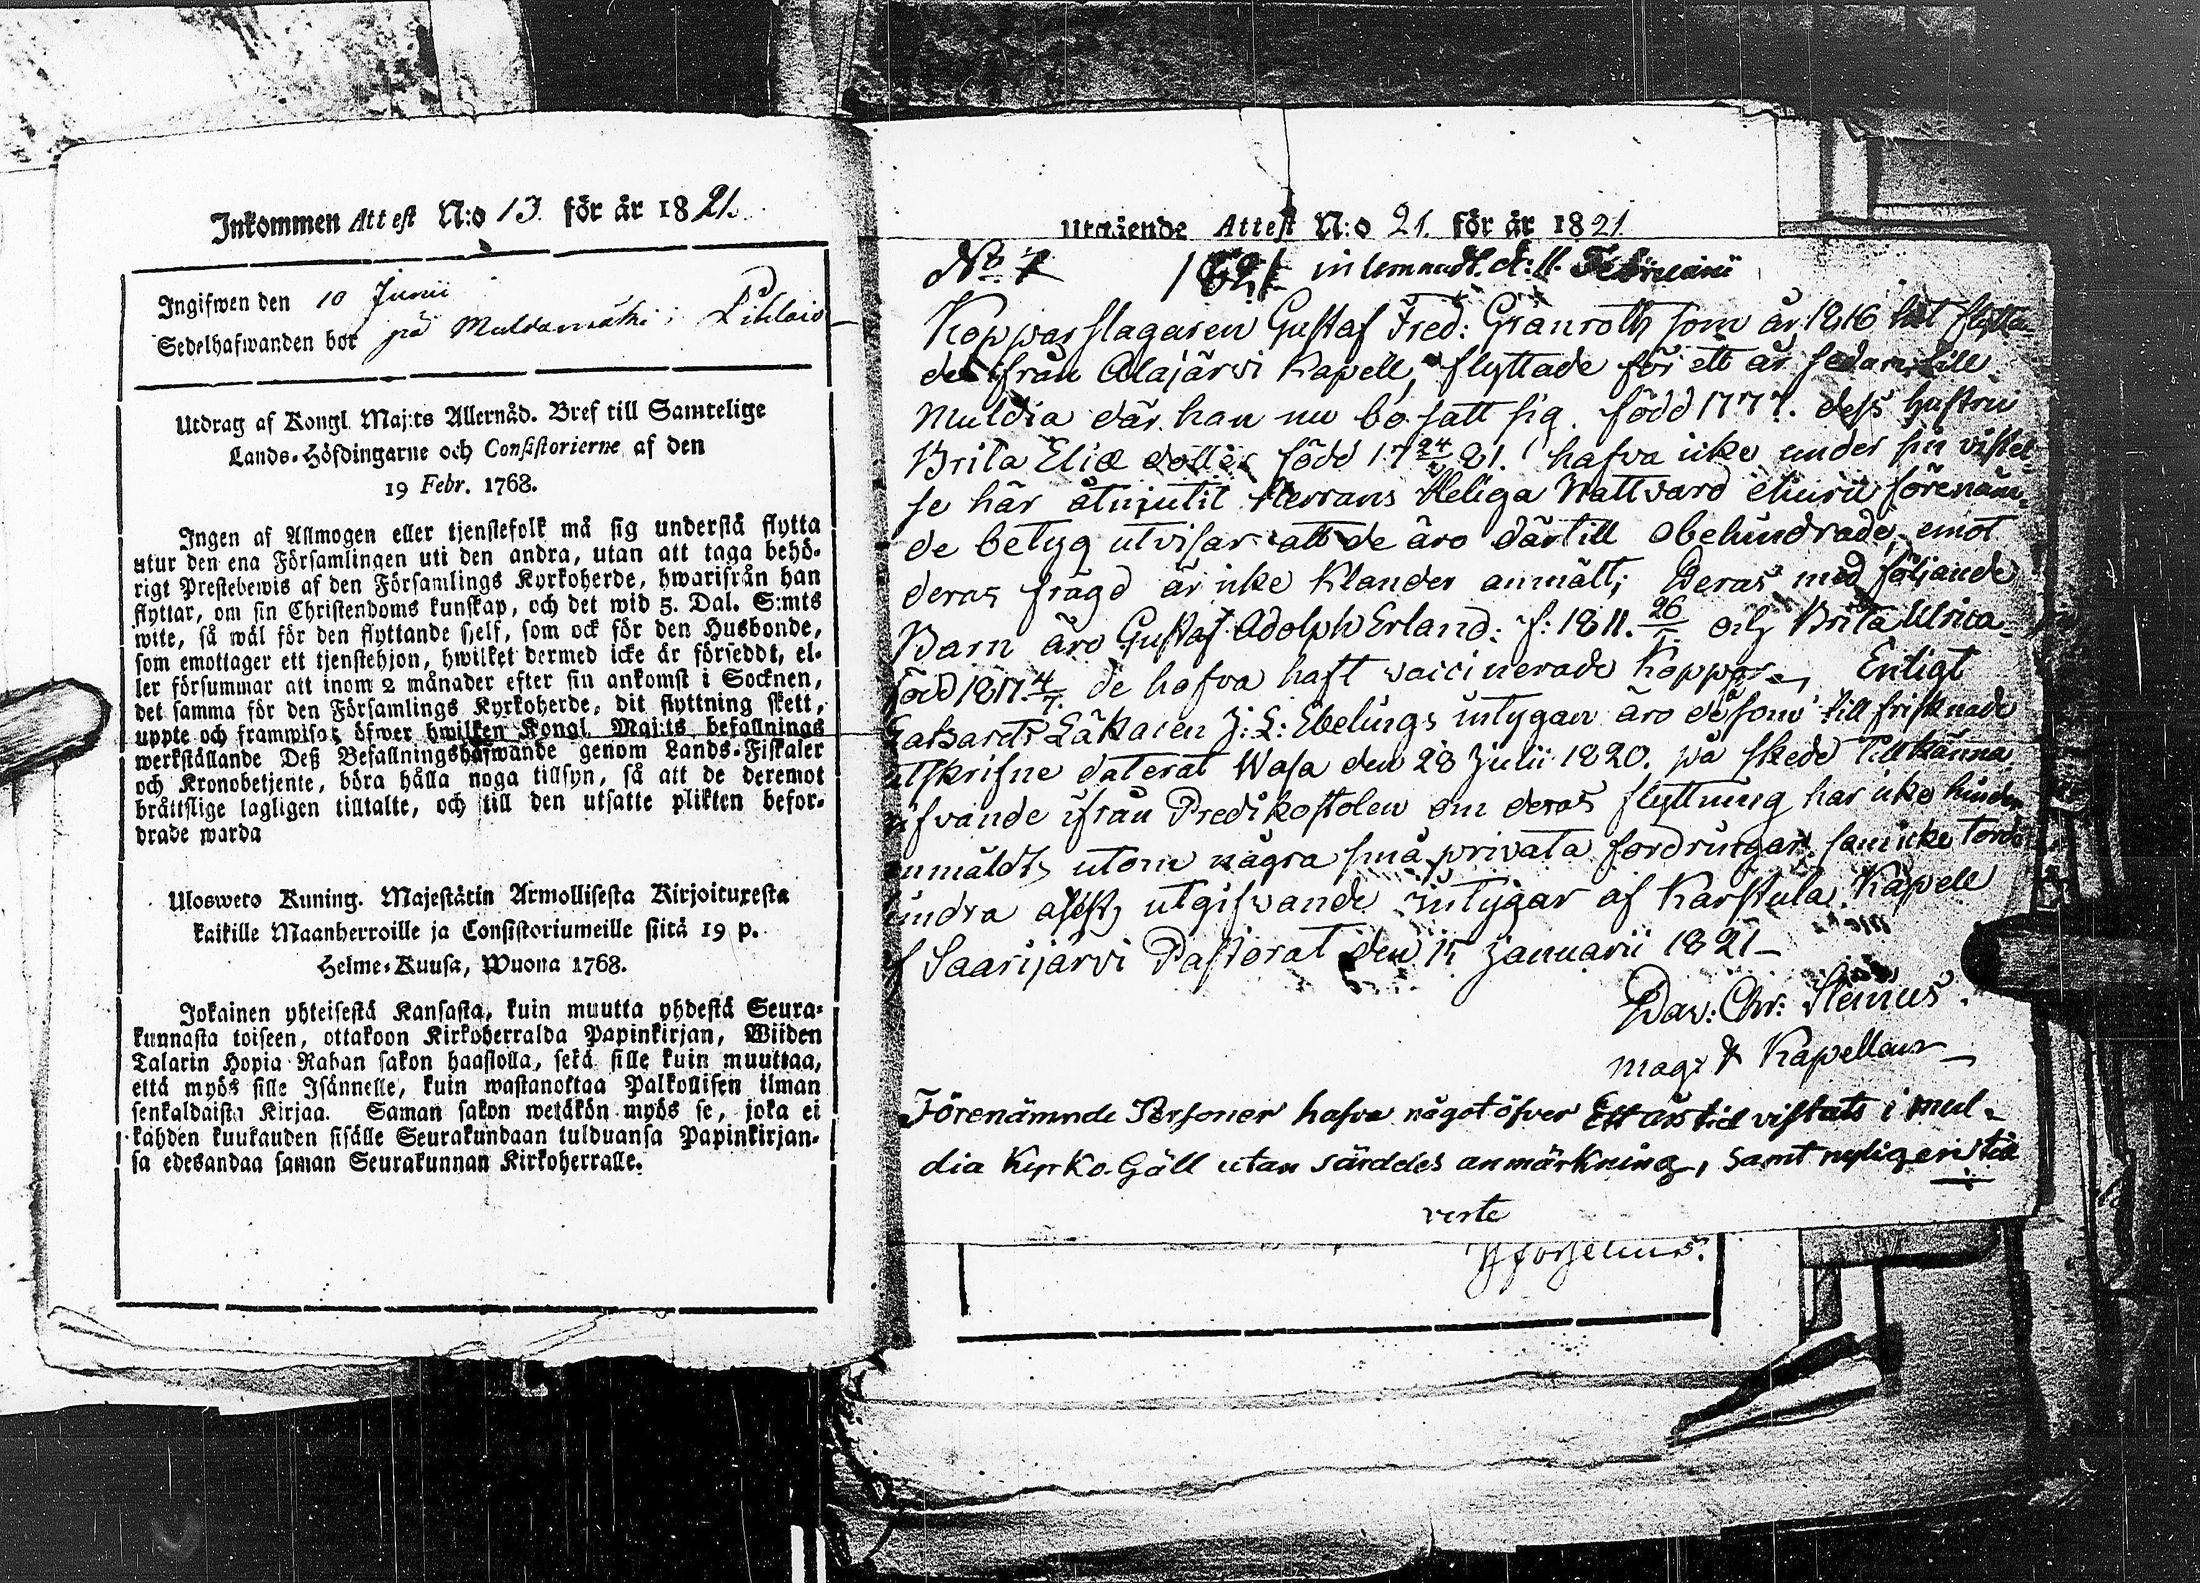 Inkommen Attest N:o 13. för år 1821.
Ingifwen den 10 Junii
Sedelhafwanden bor på Muldamäki i Pihlais
Utdrag af Kongl. Maj:ts Allernåd. Bref till Samtelige
Lands-Höfdingarne och Consistorierne af den
19 Febr. 1768.
Ingen af Allmogen eller tjenstefolk må sig understå flytta
utur den ena Församlingen uti den andra, utan att taga behö-
rigt Prestebewis af den Församlings Kyrkoherde, hwarifrån han
flyttar, om sin Christendoms kunskap, och det wid 5. Dal. S:mts
wite, så wäl för den flyttande sjelf, som ock för den Husbonde,
som emottager ett tjenstehjon, hwilket dermed icke är försedt, el-
ler försummar att inom 2 månader efter sin ankomst i Socknen,
det samma för den Församlings Kyrkoherde, dit flyttning skett,
uppte och framwisa; öfwer hwilken Kongl. Maj:ts befallnings
werkställande Deß Befallningshafwande genom Lands-Fiskaler
och Kronobetjente, böra hålla noga tillsyn, så att de deremot
bråttslige lagligen tilltalte, och till den utsatte plikten befor-
drade warda
Ulosweto Kuning. Majestätin Armollisesta Kirjoituxesta
kaikille Maanherroille ja Consistoriumeille siitä 19 p.
Helme-Kuusa, Wuona 1768.
Jokainen yhteisestä Kansasta, kuin muutta yhdestä Seura-
kunnasta toiseen, ottakoon Kirkoherralda Papinkirjan, Wiiden
Talarin Hopia Rahan sakon haastolla, sekä sille kuin muuttaa,
että myös sille Isännelle, kuin wastanottaa Palkollisen ilman
senkaldaista Kirjaa. Saman sakon wetäkön myös se, joka ei
kahden kuukauden sisälle Seurakundaan tulduansa Papinkirjan-
sa edesandaa saman Seurakunnan Kirkoherralle.
Utgående Attest N:o 21. för år 1821
No 7 1821 inlemnadt. d: 11. Februarii
Kopparslagaren Gustaf Fred: Granroth som år 1816 hit flytta-
de ifrån Alajärvi Kapell, flyttade för ett år sedan till
Muldia där han nu bosatt sig. född 1777. dess hustru
Brita Eliæ dotter född 17 24 81. hafva icke under sin vistel-
se här åtnjutit Herrans Heliga Nattvard ehuru förenäm-
de betyg utvisar att de äro därtill obehindrade, emot
deras frägd är icke klander anmält; Deras med följande
Barn äro Gustaf Adolph Erland: f: 1811. 26 och Brita Ulrica
född 1817. 4/7. de hafva haft vaccinerade Koppor Enligt
Lazaretts Läkaren J: L: Ebelings intygan äro de som till frisknade
utskrifne daterat Wasa den 28 Julii 1820. på skedd Tillkänna
gifvande ifrån Predikostolen om deras flyttning har icke hinder
anmäldts utom några små privata fordringar som icke torde
hindra attest utgifvande intygar af Karstula Kapell
af Saarijärvi Pastorat den 15 Januarii 1821
Dav: Chr: Stenius.
Mag: & Kapellan
Förenämnde Personer hafva något öfver Ett års tid vistats i Mul-
dia Kyrko Gäll utan särdeles anmärkning, samt nyligen
verte